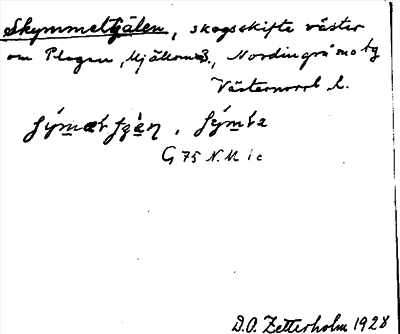 Skymmeltjälen, skogsskifte väster
om Plogen, Mjällom 3, Nordingrå tg
Västernorrl. l.
G 75 N.M 1c
D.O. Zetterholm 1928